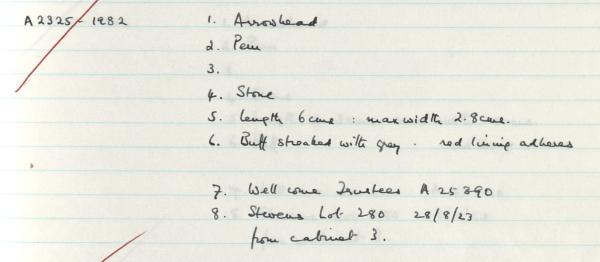 A2325-1982 1. Arrowhead
2. Peru
3.
4. Stone
5. Length 6cms : max width 2.8cms.
6. Buff streaked with grey . red lining adheres
7. Wellcome Trustees A 25890
8. Stevens Lot 280 28/8/23
from cabinet 3.